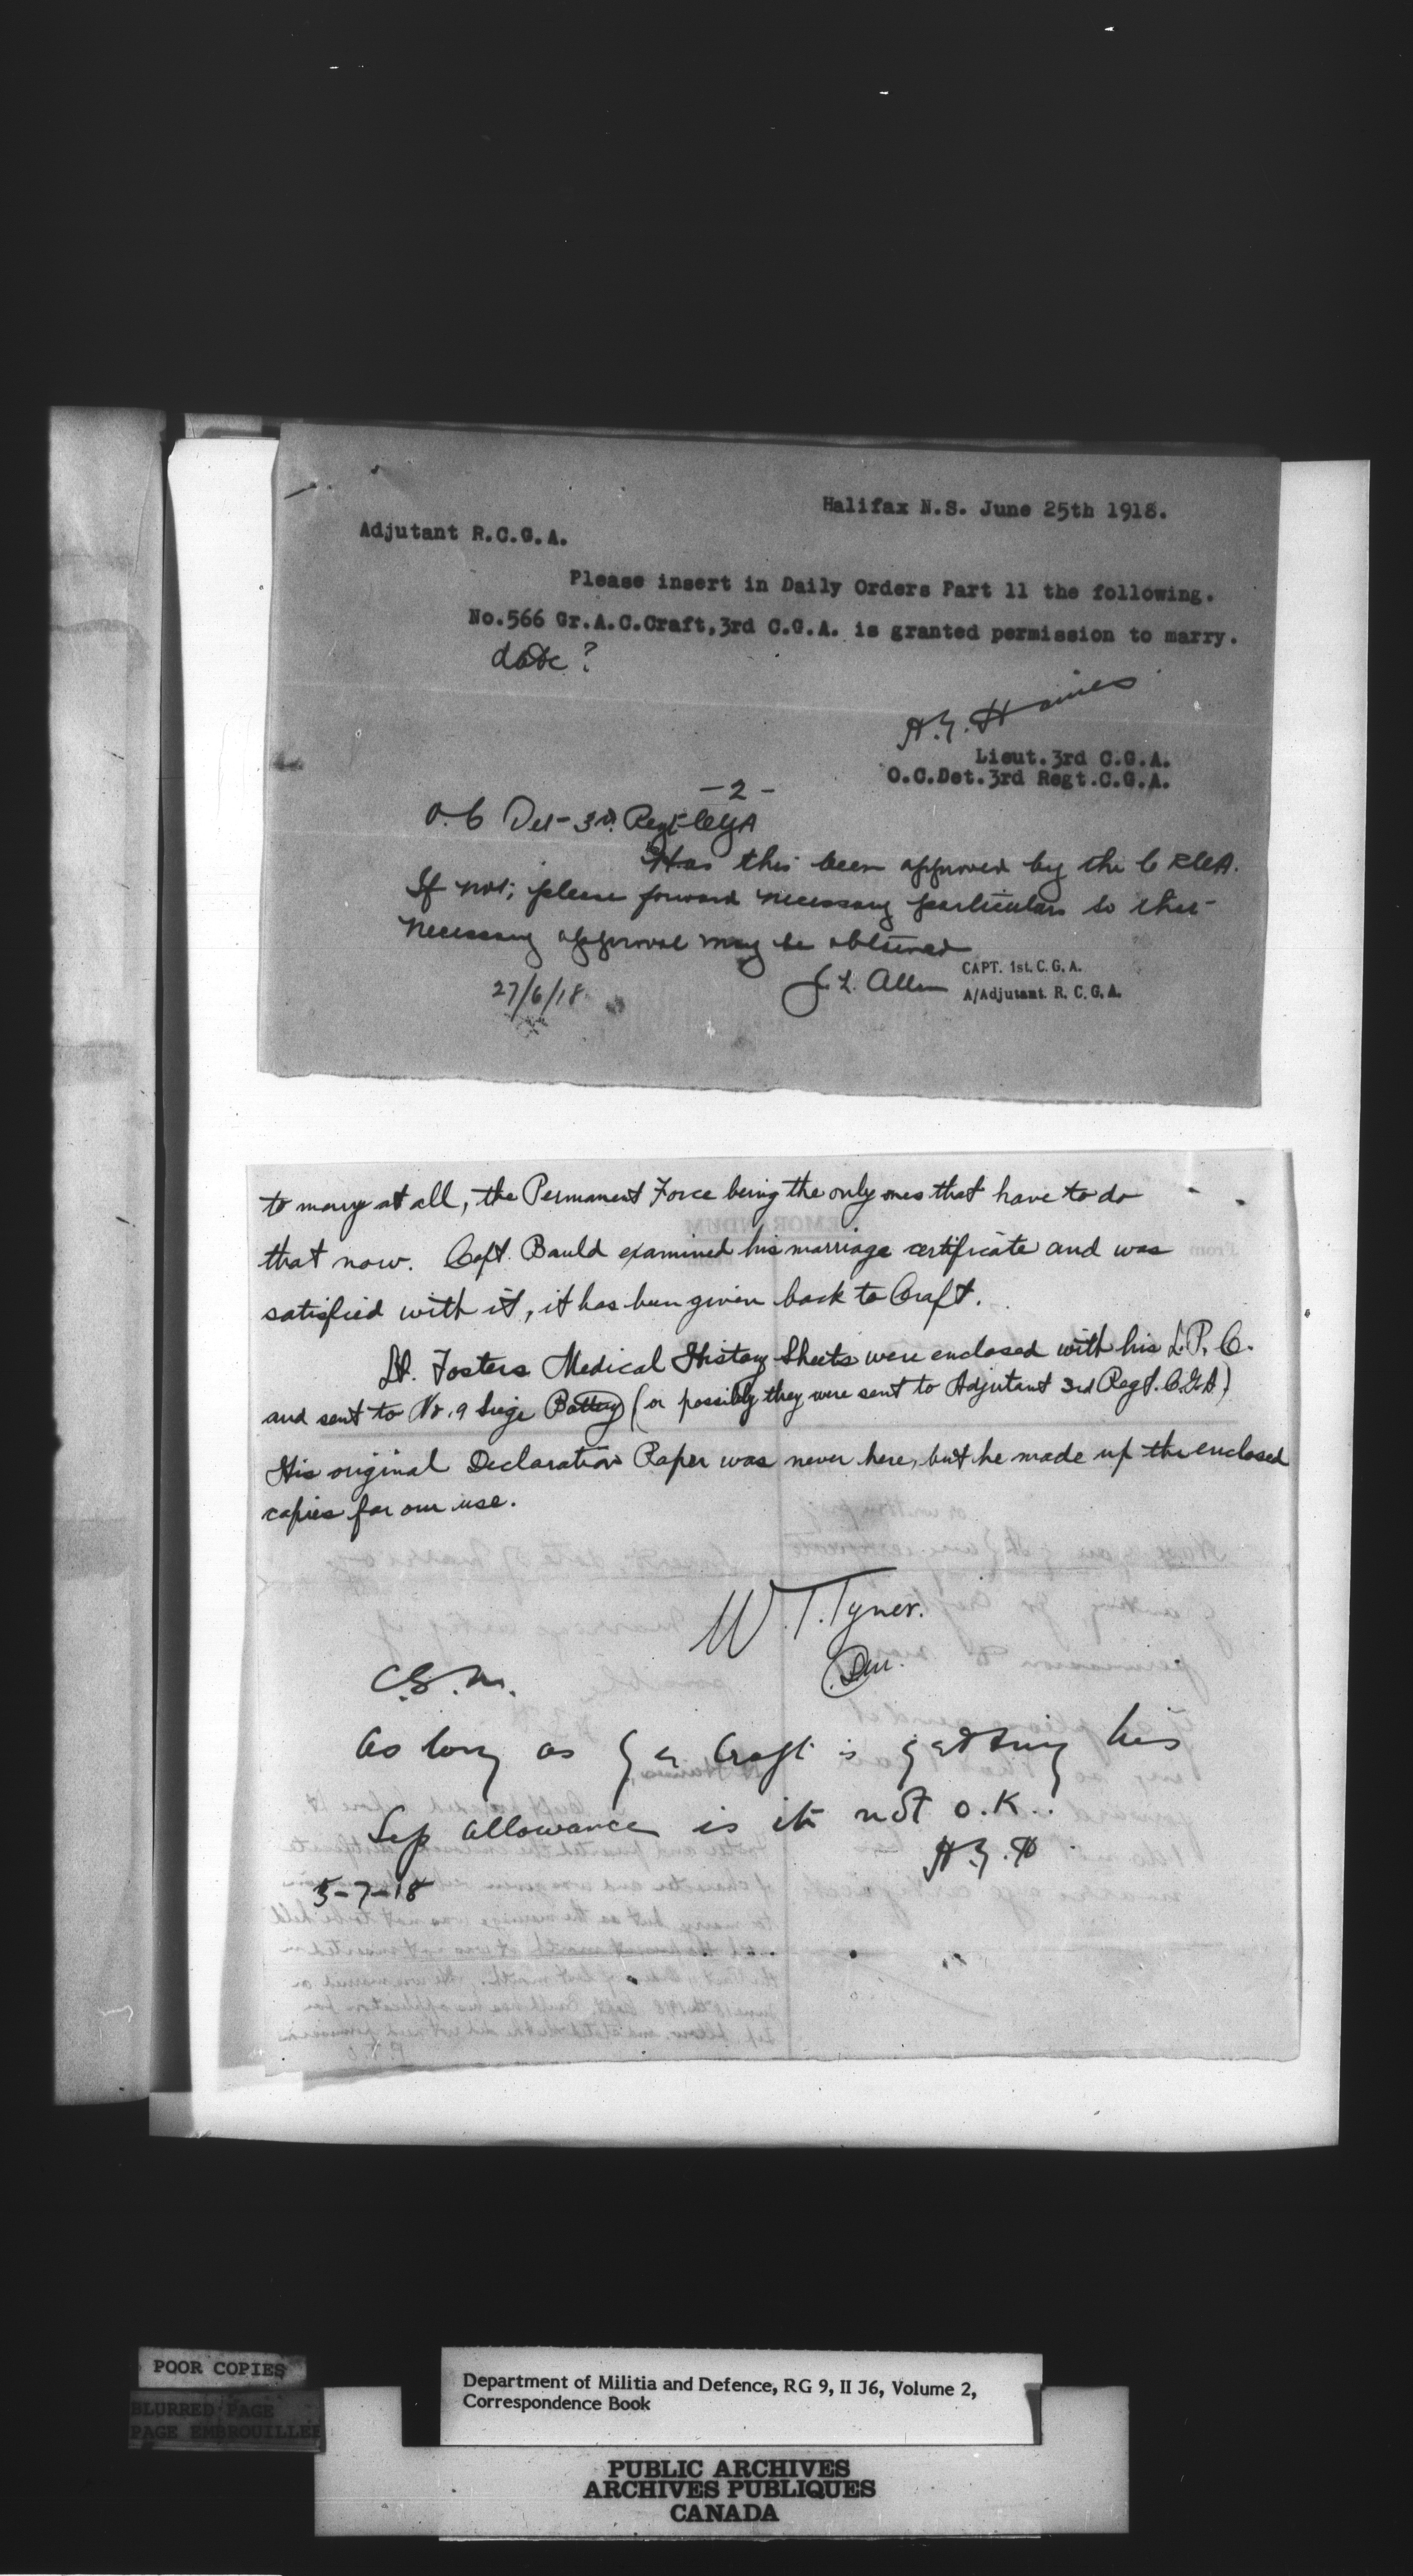 Halifax N.S. June 25th 1918.
Adjutant R.C.G.A.
Please insert in Daily Orders Part 11 the following.
No.566 Gr.A.C.Craft,3rd C.G.A. is granted permission to marry.
date?
Haines
Lieut.3rd C.G.A.
O.C.Det.3rd Regt.C.G.A.
-2-
O.C Det- 3rd. Regt CGA
Has this been approved by the C RCGA.
If not; please forward necessary particulars so that
necessary approval may be obtained
J. L. Allen CAPT. 1st. C. G. A.
27/6/18 A/Adjutant. R. C. G. A.
to marry at all, the Permanent Force being the only ones that have to do
that now. Capt. Bauld examined his marriage certificate and was
satisfied with it, it has been given back to Craft.
Lt. Fosters Medical History Sheets were enclosed with his L.P.C.
and sent to No. 9 Siege Battery (or possibly they were sent to Adjutant 3rd Regt. C.G.A.)
His original Declaration Paper was never here, but he made up the enclosed
copies for our use.
W. T. Tyner.
C.S.M.
As long as Gr Craft is getting his
Sep allowance is it not O.K..
5-7-18
POOR COPIES
BLURRED PAGE
PAGE EMBROUILLEE
Department of Militia and Defence, RG 9, II J6, Volume 2,
Correspondence Book
PUBLIC ARCHIVES
ARCHIVES PUBLIQUES
CANADA